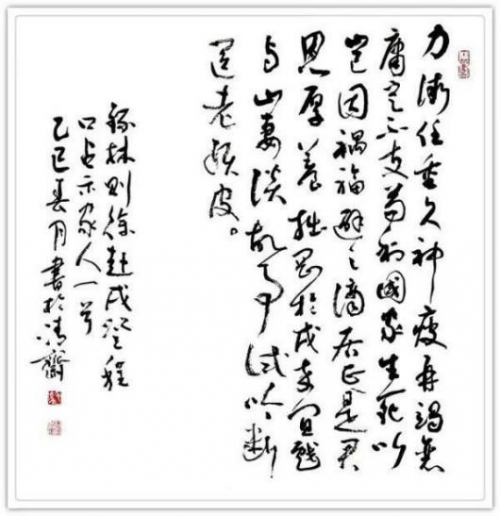 力微任重久神疲再竭衰
庸定不支苟利國家生死以
豈因禍福避之謫居正是君
恩厚養拙剛於戍卒宜戲
与山妻談故事试吟断
送老頭皮。
錄林则徐赴戍登程
口占示家人一首
乙巳春月書於清齋